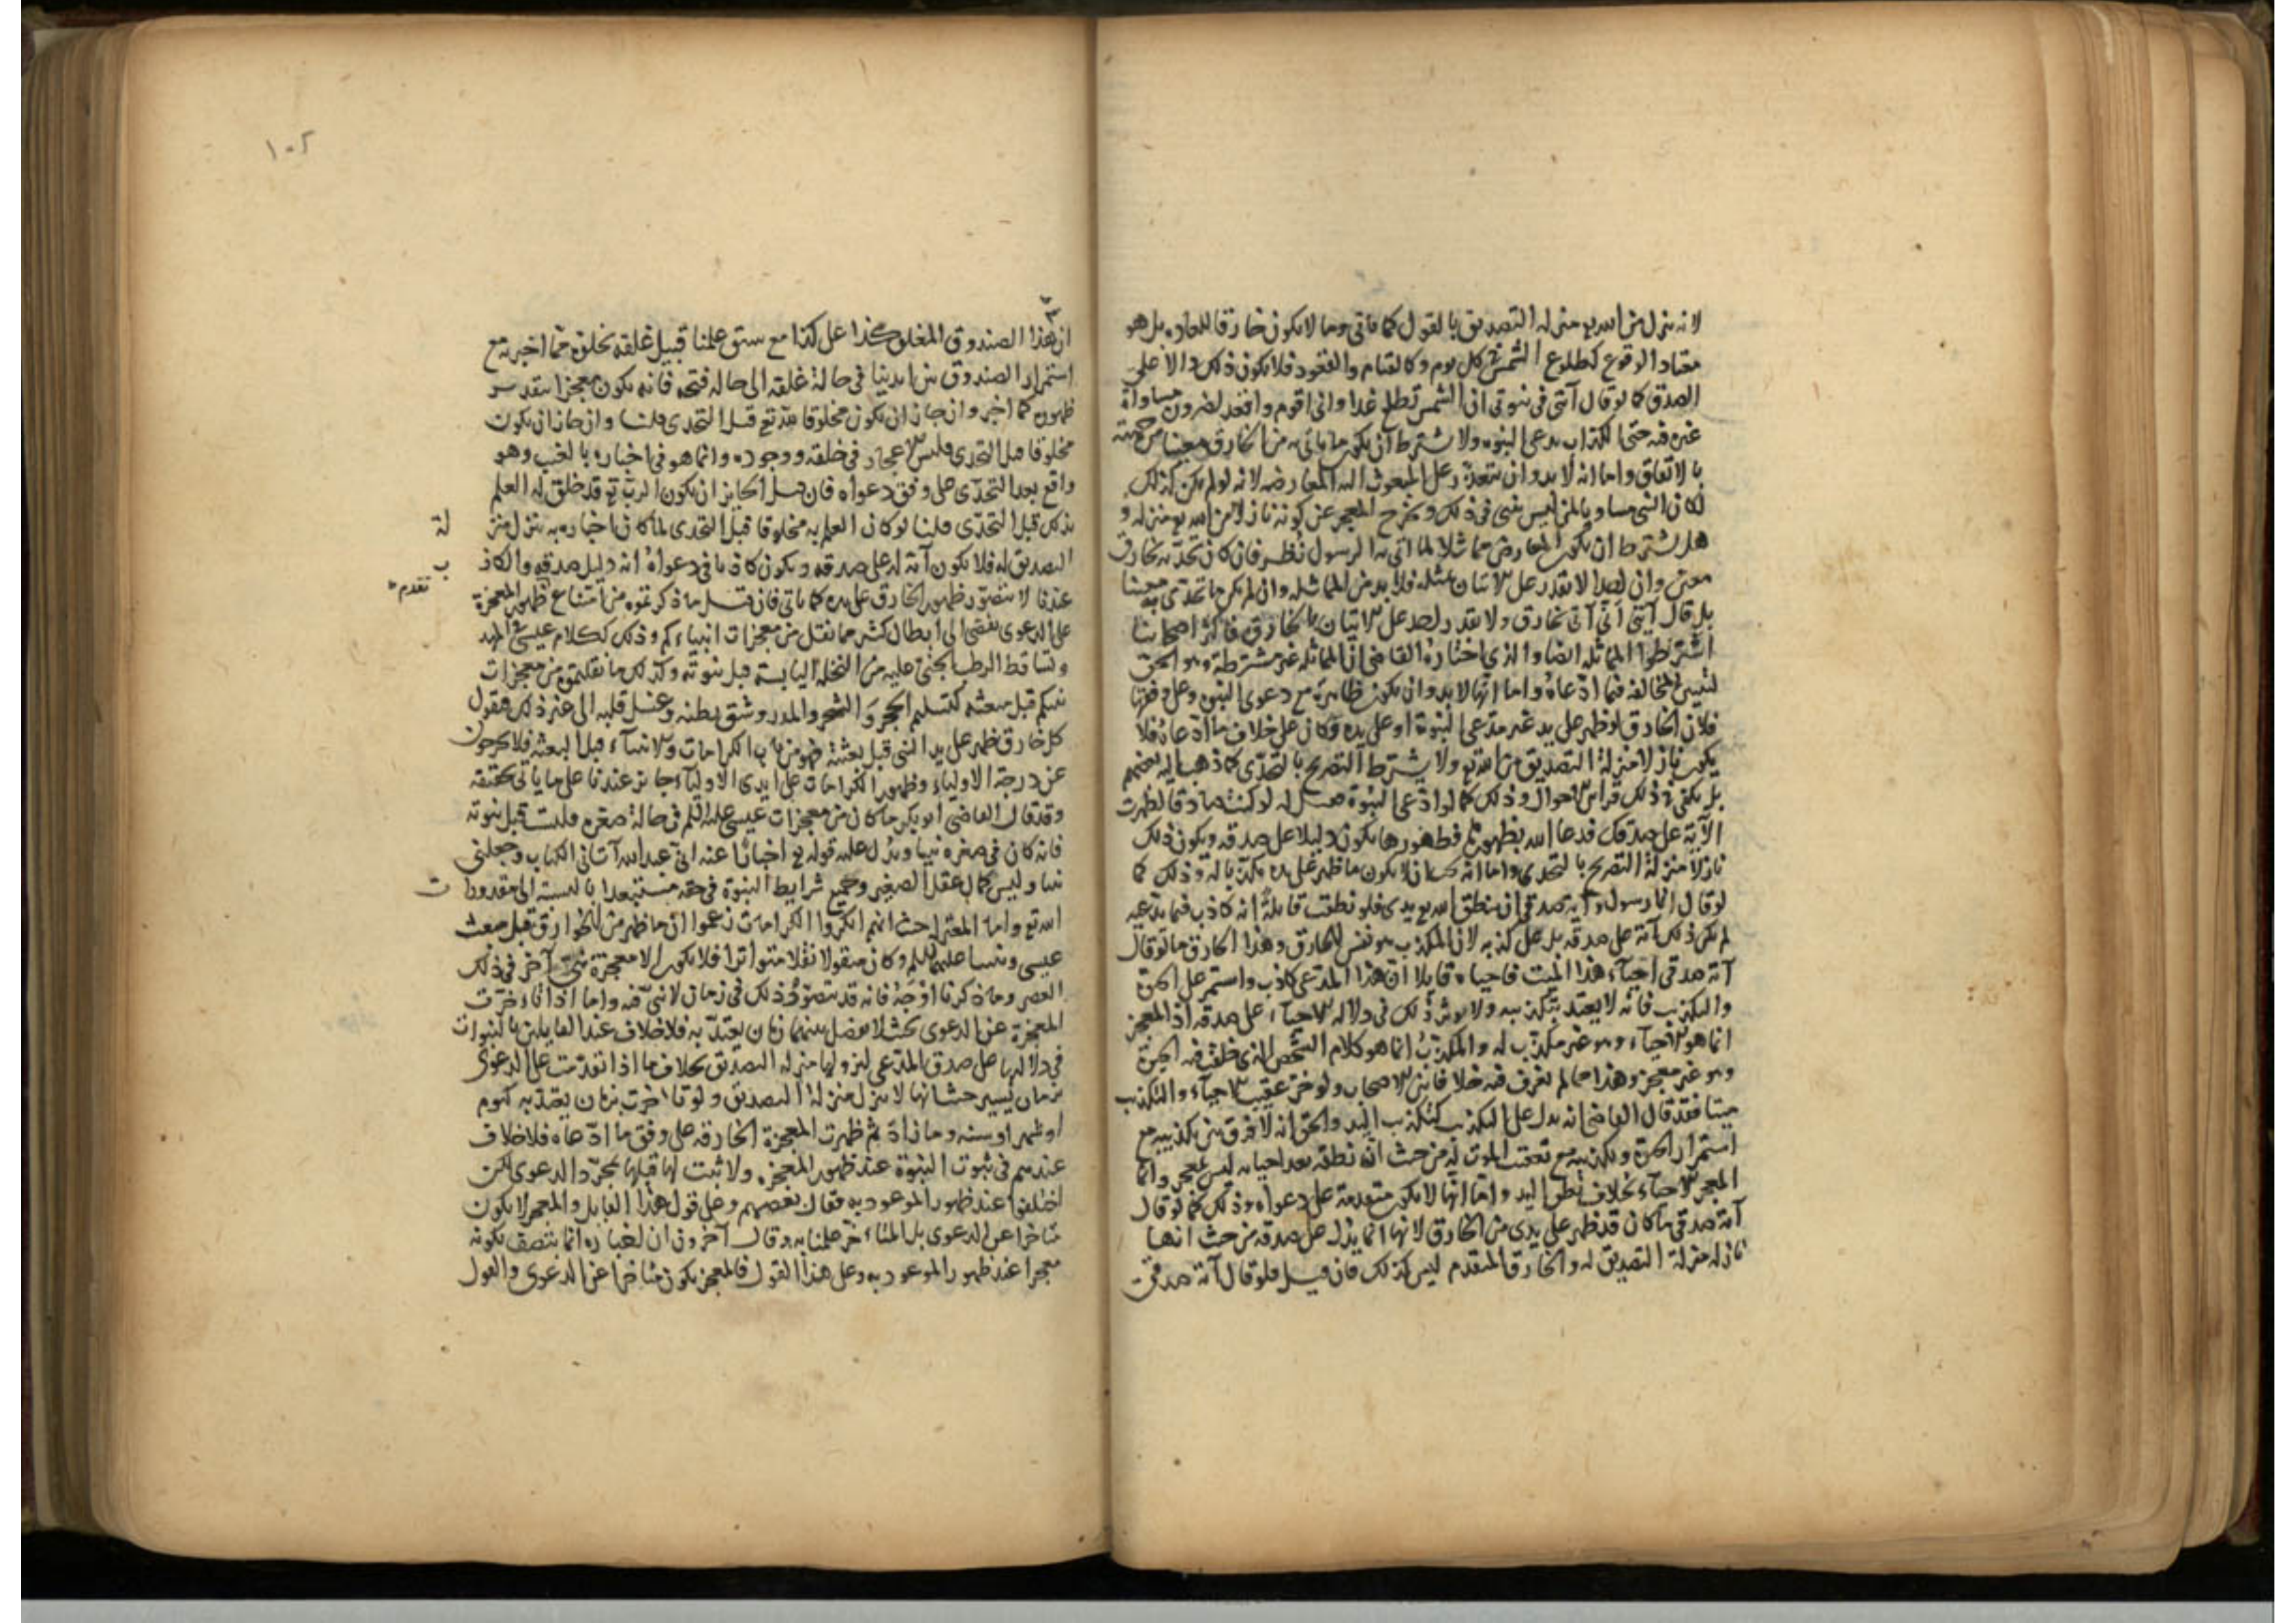 لانه ينزل من الله تع منزلة التصديق بالقول كما ياتي وما لا يكون خارقا للعاده بل هو
معتاد الوقوع كطلوع الشمس في كل يوم وكالقيام والقعود فلا يكون ذلك دالا على
الصدق كما لو قال آيتي في نبوتي ان الشمس تطلع غدا واني اقوم واقعد لضرورة مساواة
غيره فيه حتى الكذاب يدعي النبوه ولا يشترط ان يكون ما ياتي به من الخارق معينا من جهته
بالاتفاق واما انه لا بد وان يتعذر على المبعوث اليه المعارضه لانه لو لم يكن كذلك
لكان النبي مساويا لمن ليس بنبي في ذلك ويخرج المعجز عن كونه نازلا من الله تع منزلة و
هل يشترط ان يكون المعارض مماثلا لما اتى به الرسول نظر فان كان تحديه بخارق
معين وان احدا لا يقدر على الاتيان بمثله فلا بد من المماثله وان لم يكن ما تحدى به معينا
بل قال آيتي اني آتي بخارق ولا يقدر احد على الاتيان بالخارق فاكثر اصحابنا
اشترطوا المماثله ايضا والذي اختاره القاضي ان المماثله غير مشترطة وهو الحق
لتبين المخالفه فيما ادعاه واما انها لا بد وان يكون ظاهرة مع دعوى النبوه وعلى وفقها
فلان الخارق لو ظهر على يد غير مدعي النبوة او على يده وكان على خلاف ما ادعاه فلا
يكون نازلا منزلة التصديق من الله تع ولا يشترط التصريح بالتحدي كما ذهب اليه بعضهم
بل يكفي في ذلك قراين الاحوال وذلك كما لو ادعى النبوة فقيل له لو كنت صادقا لظهرت
الآية على صدقك فدعا الله بظهورها فظهورها يكون دليلا على صدقه ويكون ذلك
نازلا منزلة التصريح بالتحدي واما انه يجب ان لا يكون ما ظهر على يده مكذبا له وذلك كما
لو قال انا رسول وآية صدقي ان ينطق الله تع يدي فلو نطقت قايلة انه كاذب فيما يدعيه
لم يكن ذلك آية على صدقه بل على كذبه لان المكذب هو نفس الخارق وهذا الخارق ما لو قال
آية صدقي احياء هذا الميت فاحياه قايلا ان هذا المدعي كاذب واستمر على الحيوة
والتكذيب فانه لا يعتد بتكذيبه ولا يوثر ذلك في دلالة الاحياء على صدقه اذ المعجز
انما هو الاحياء وهو غير مكذب له والمكذب انما هو كلام الشخص الذي خلقت فيه الحيوة
وهو غير معجز وهذا مما لم نعرف فيه خلافا بين الاصحاب ولو خر عقيب الاحياء والتكذيب
ميتا فقد قال القاضي انه يدل على التكذيب كتكذيب اليد والحق انه لا فرق بين تكذيبه مع
استمرار الحيوة وتكذيبه مع تعقب الموت له من حيث ان نطقه بعد احيائه ليس بمعجز وانما
المعجز الاحياء بخلاف نطق اليد واما انها لا يكون متقدمة على دعواه وذلك كما لو قال
آية صدقي ما كان قد ظهر على يدي من الخارق لانها انما يدل على صدقه من حيث انها
نازلة منزلة التصديق له والخارق المتقدم ليس كذلك فان قيل فلو قال آية صدقي
١٠٢
ان هذا الصندوق المغلق كذا على كذا مع سبق علمنا قبيل غلقه بخلوه عما اخبر به مع
استمرار الصندوق بين ايدينا في حالة غلقه الى حاله فتحه فانه يكون معجزا بتقدير
ظهوره كما اخبر وان جاز ان يكون مخلوقا لله تع قبل التحدي قلنا وان جاز ان يكون
مخلوقا قبل التحدي فليس الاعجاز في خلقه ووجوده وانما هو في اخباره بالغيب وهو
واقع بعد التحدي على وفق دعواه فان قيل الجايز ان يكون الرب تع قد خلق له العلم
بذلك قبل التحدي قلنا لو كان العلم به مخلوقا قبل التحدي لما كان اخباره به ينزل منز
لة
التصديق له فلا يكون آية له على صدقه ويكون كاذبا في دعواه انه دليل صدقه والكاذ
ب
عندنا لا يتصور ظهور الخارق على يده كما ياتي فان قيل ما ذكرتموه من امتناع ظهور المعجزة
تقدم
على الدعوى يفضي الى ابطال كثير مما نقل من معجزات انبياءكم وذلك ككلام عيسى في المهد
وتساقط الرطب الجني عليه من النخلة اليابسة قبل نبوته وكذلك ما نقلتموه من معجزات
نبيكم قبل مبعثه كتسليم الحجر والشجر والمدر وشق بطنه وغسل قلبه الى غير ذلك فنقول
كل خارق ظهر على يد النبي قبل بعثته فهو من باب الكرامات والانبياء قبل البعثه فلا يخرجون
عن درجة الاولياء وظهور الكرامات على ايدي الاولياء جائز عندنا على ما ياتي تحقيقه
وقد قال القاضي ابو بكر ما كان من معجزات عيسى عليه السلم في حالة صغره فليست قبل نبوته
فانه كان في صغره نبيا ويدل عليه قوله تع اخبارا عنه اني عبد الله آتاني الكتاب وجعلني
نبيا وليس كمال عقل الصغير وجميع شرايط النبوة في حقه مستبعدا بالنسبة الى مقدورا
ت
الله تع واما المعتزلة حيث انهم انكروا الكرامات زعموا ان ما ظهر من الخوارق قبل مبعث
عيسى ونبينا عليهما السلم وكان منقولا نقلا متواترا فلا يكون الا معجزة لنبي آخر في ذلك
العصر وما ذكرناه اوجه فانه قد يتصور ذلك في زمان لا نبي فيه واما اذا تاخرت
المعجزة عن الدعوى بحيث لا يفصل بينهما زمان يعتد به فلا خلاف عند القايلين بالنبوات
في دلالتها على صدق المدعي لنزولها منزلة التصديق بخلاف ما اذا تقدمت على الدعوى
بزمان يسير حيث انها لا ينزل منزلة التصديق ولو تاخرت بزمان يعتد به كيوم
او شهر او سنه وما زاد ثم ظهرت المعجزة الخارقه على وفق ما ادعاه فلا خلاف
عندهم في ثبوت النبوة عند ظهور المعجزه ولا ثبت لها قبلها بمجرد الدعوى لكن
اختلفوا عند ظهور الموعود به فقال بعضهم وعلى قول هذا القايل والمعجز لا يكون
متاخرا عن الدعوى بل المتاخر علمنا به وقال آخرون ان اخباره انما يتصف بكونه
معجزا عند ظهور الموعود به وعلى هذا القول فالمعجز يكون متاخرا عن الدعوى والقول